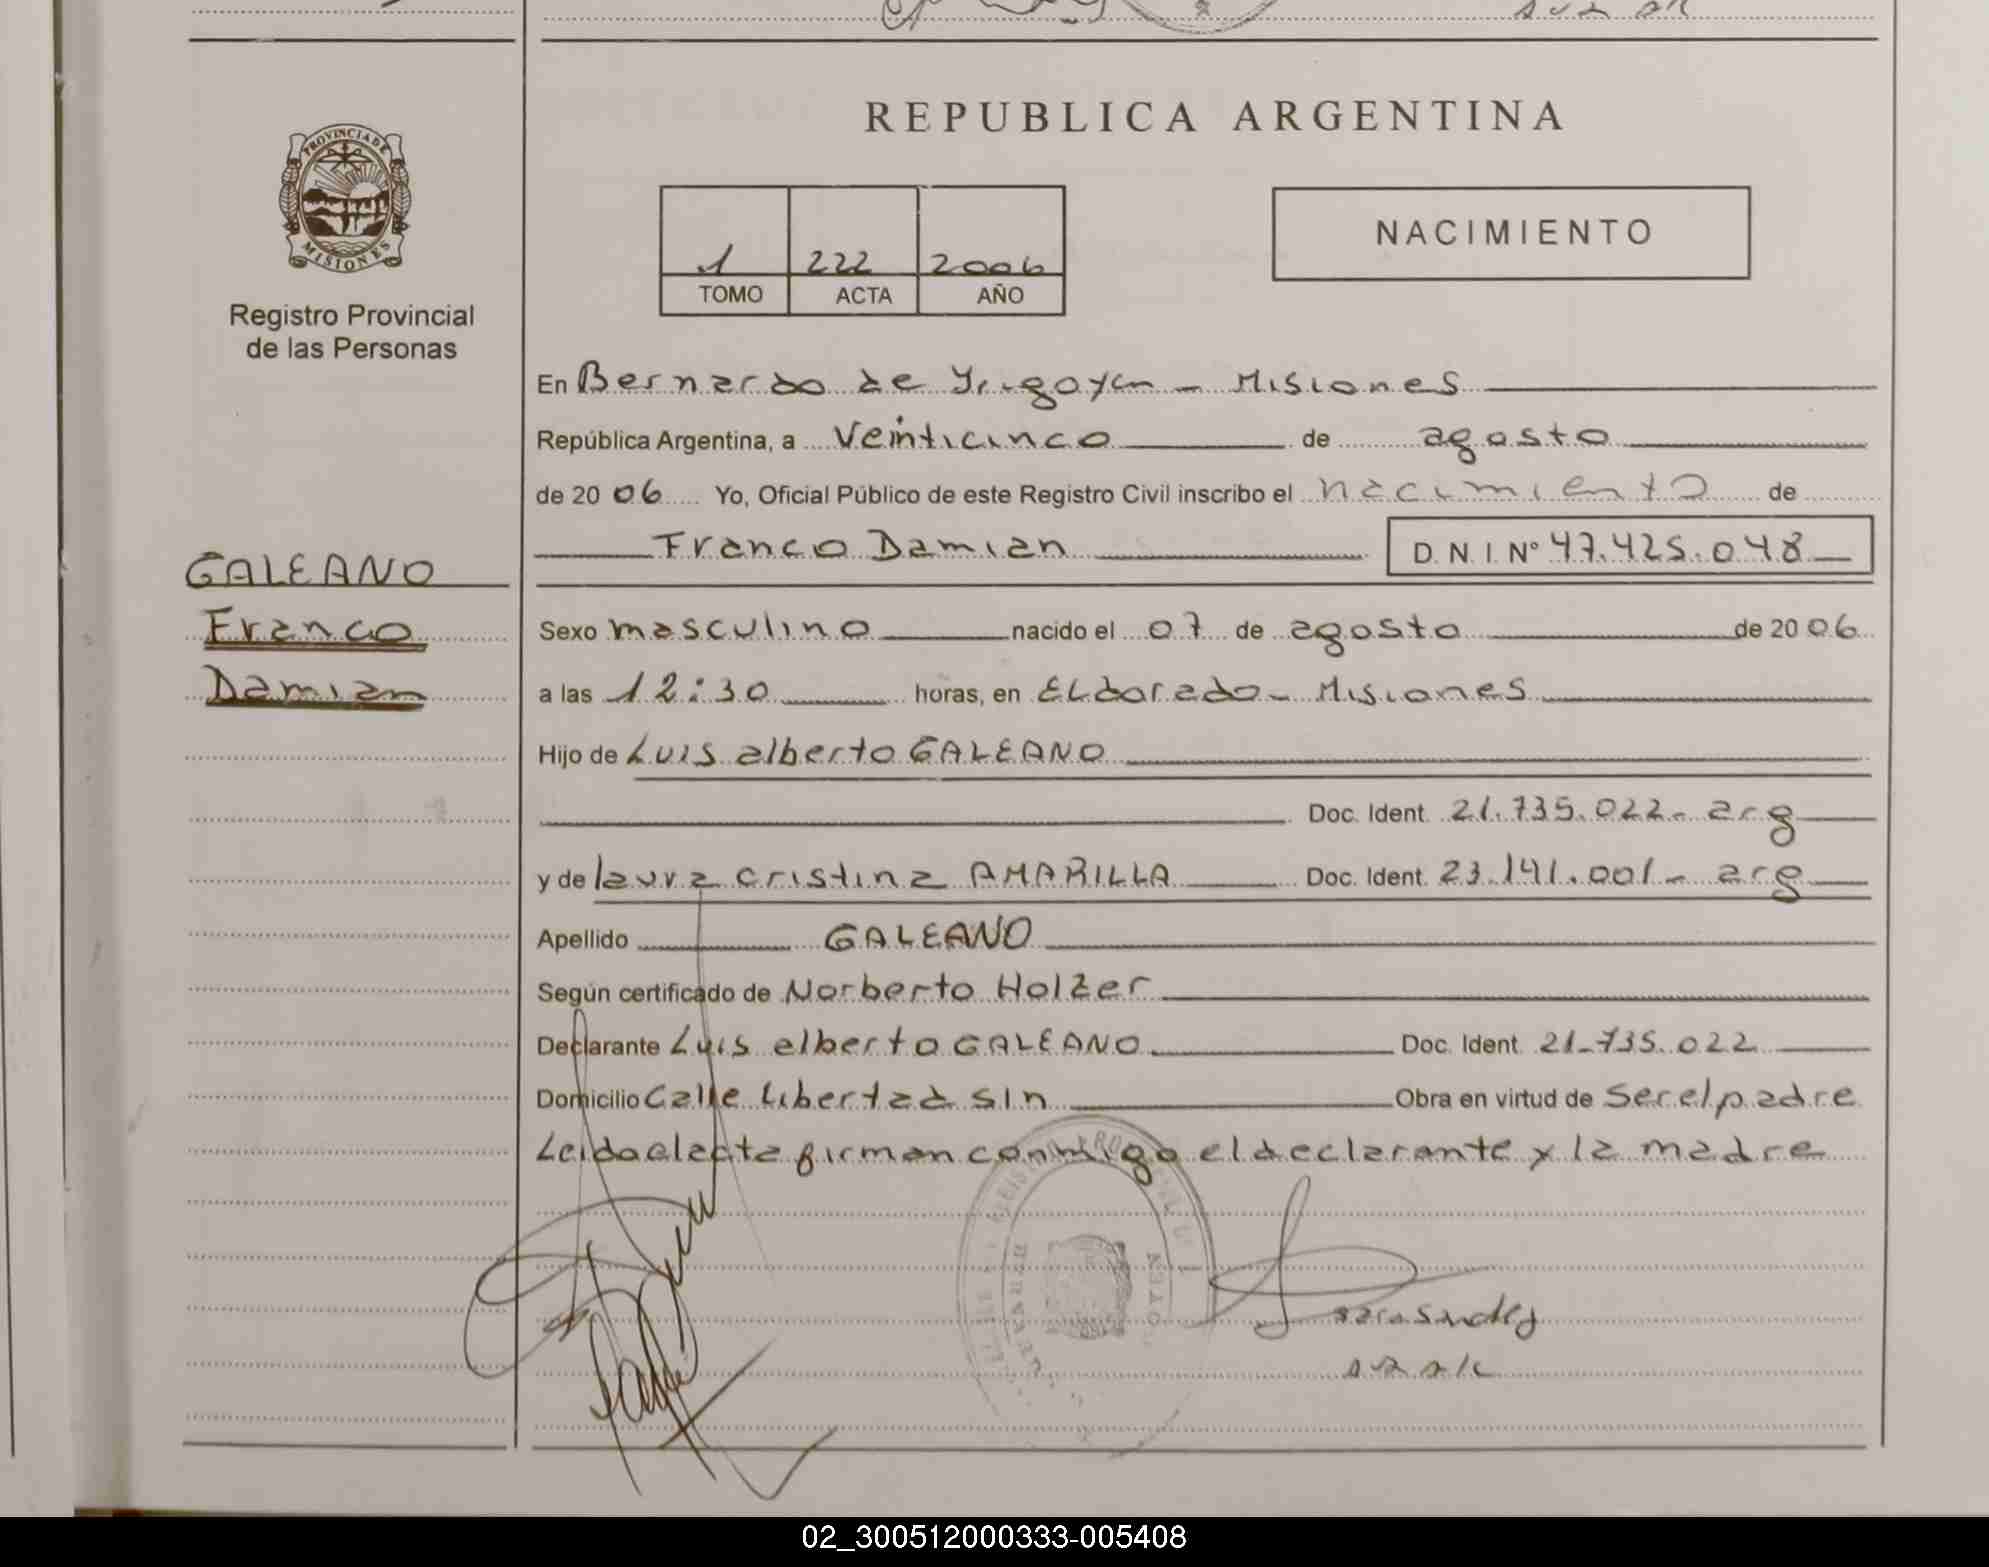 PROVINCIA DE
MISIONES
Registro Provincial
de las Personas
GALEANO
Franco
Damian
REPUBLICA ARGENTINA
1 222 2006
TOMO ACTA AÑO
NACIMIENTO
En Bernardo de Yrigoyen - Misiones
República Argentina, a Veinticinco de agosto
de 2006 Yo, Oficial Público de este Registro Civil inscribo el nacimiento de
Franco Damian D.N.I. Nº 47.425.048
Sexo masculino nacido el 07 de agosto de 2006
a las 12:30 horas, en Eldorado - Misiones
Hijo de Luis alberto GALEANO
Doc. Ident. 21.735.022- arg
y de laura cristina AMARILLA Doc. Ident. 23.141.001- arg
Apellido GALEANO
Según certificado de Norberto Holzer
Declarante Luis alberto GALEANO Doc. Ident. 21-735.022
Domicilio Calle Libertad S/n Obra en virtud de Ser el padre
Leida el acta firman conmigo el declarante y la madre
02_300512000333-005408